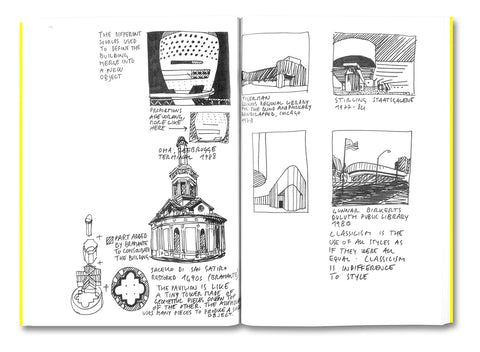 THE DIFFERENT
SOURCES USED
TO DEFINE THE
BUILDING
MERGE INTO
A NEW
OBJECT
PROPORTIONS
ARE WRONG,
MORE LIKE
HERE
OMA, ZEEBRUGGE
TERMINAL 1988
PART ADDED
BY BRAMANTE
TO CONSOLIDATE
THE BUILDING
SACELLO DI SAN SATIRO
RESTORED 1490S (BRAMANTE)
THE PAVILION IS LIKE
A TINY TOWER MADE OF
GEOMETRIC PIECES ON TOP
OF THE OTHER. THE
MANY PIECES TO PRODUCE A
OBJECT.
TIGERMAN
REGIONAL LIBRARY
FOR THE BLIND AND PHYSICALLY
HANDICAPPED, CHICAGO
STIRLING STAATSGALERIE
1977-84
GUNNAR BIRKERTS
DULUTH PUBLIC LIBRARY
1980
CLASSICISM IS THE
USE OF ALL STYLES AS
IF THEY WERE ALL
EQUAL. CLASSICISM
IS INDIFFERENCE
TO STYLE